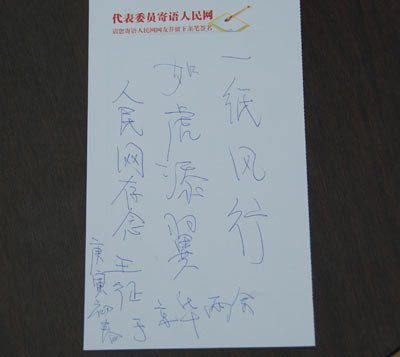 代表委员寄语人民网
请您寄语人民网网友并留下亲笔签名
一纸风行
如虎添翼
人民网存念 王征于
京华 两会
庚寅初春